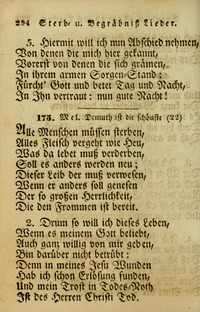 294 Sterb- u. Begräbniß Lieder.
5. Hiermit will ich nun Abschied nehmen,
Von denen die mich hier gekannt,
Vorerst von denen die sich grämen,
In ihrem armen Sorgen-Stand:
Fürcht' Gott und betet Tag und Nacht,
In Ihn vertraut: nun gute Nacht!
175. Mel. Demuth ist die schönste (22)
Alle Menschen müssen sterben,
Alles Fleisch vergeht wie Heu,
Was da lebet muß verderben,
Soll es anders werden neu;
Dieser Leib der muß verwesen,
Wenn er anders soll genesen
Der so großen Herrlichkeit,
Die den Frommen ist bereit.
2. Drum so will ich dieses Leben,
Wenn es meinem Gott beliebt,
Auch ganz willig von mir geben,
Bin darüber nicht betrübt:
Denn in meines Jesu Wunden
Hab ich schon Erlösung funden,
Und mein Trost in Todes-Noth
Ist des Herren Christi Tod.